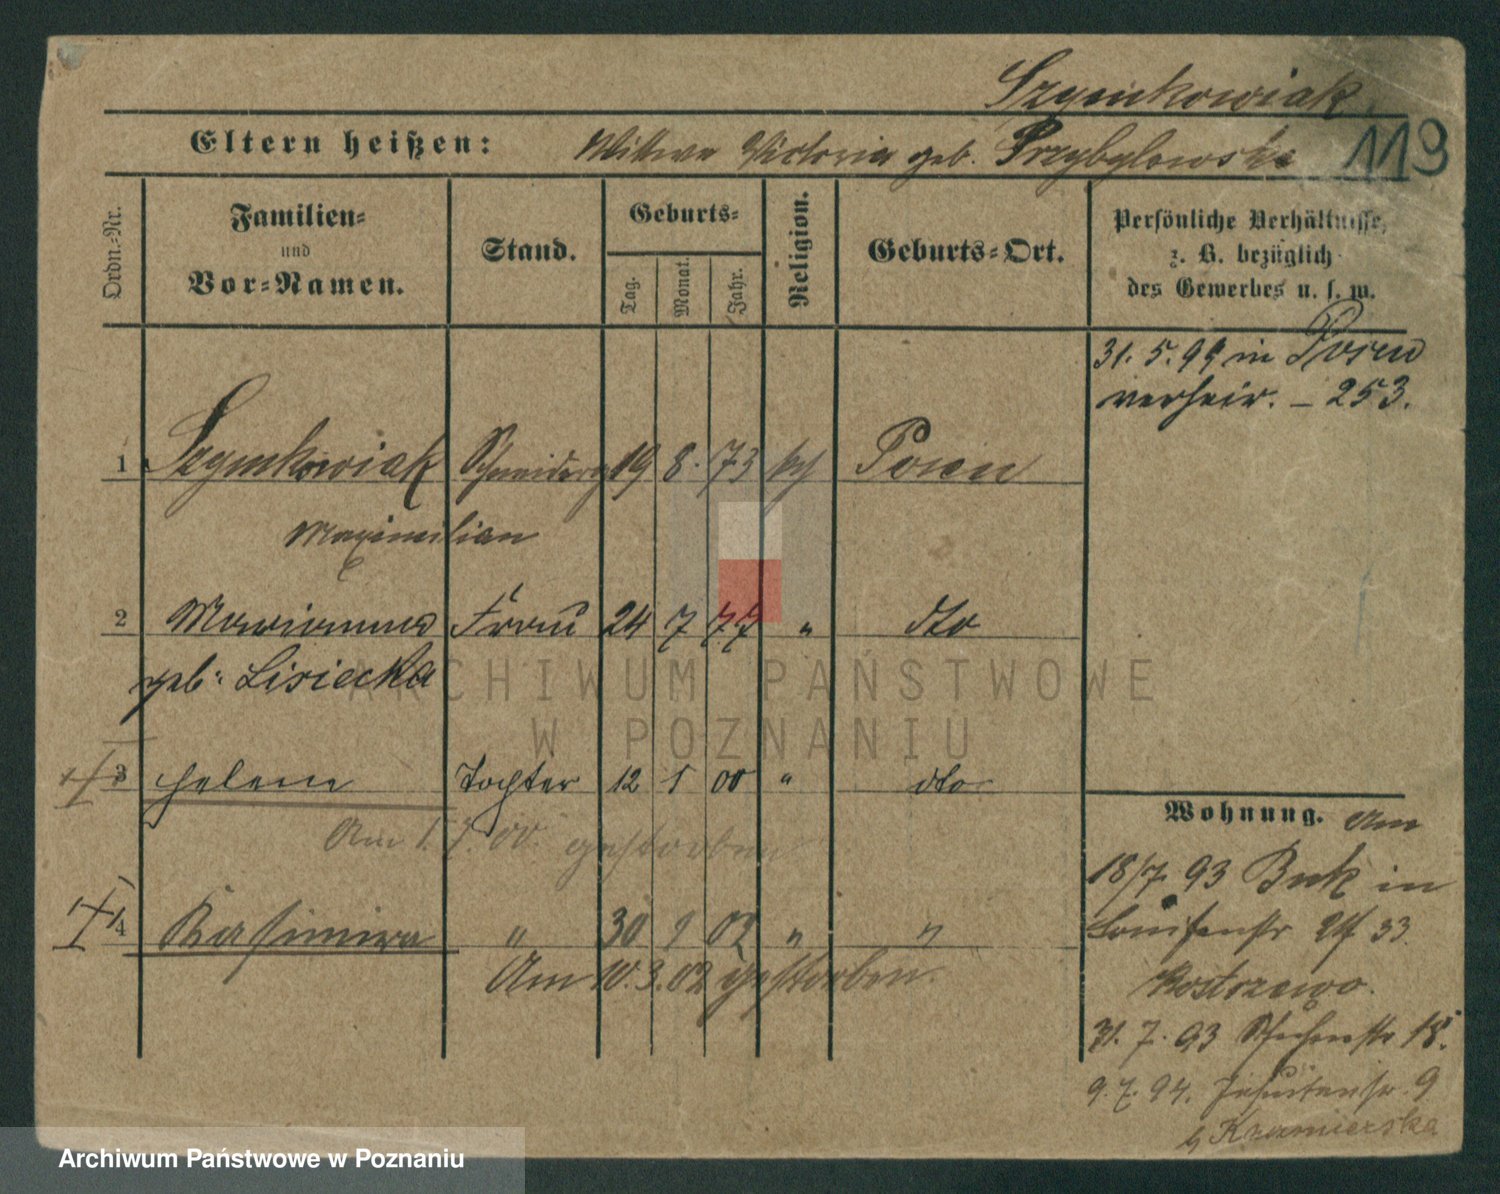 Szymkowiak
Eltern heißen: Wittwe Victoria geb. Przybylowska 119
Ordn.-Nr.
Familien-
und
Vor-Namen.
Stand.
Geburts-
Tag.
Monat.
Jahr.
Religion.
Geburts-Ort.
Persönliche Verhältnisse,
z. B. bezüglich
des Gewerbes u. s. w.
31. 5. 99 in Posen
verheir. – 253.
1 Szymkowiak 19 8. 73 kth Posen
Maximilian
2 Marianna Frau 24 7 77 " dto
geb. Lisiecka
3 Helene Tochter 12 1 00 " dto
Am 1.7.00. gestorben
4 Kasimira " 30 9 02 " "
Am 10.3.02 gestorben.
Wohnung. Am
18/7 93 Buk in
Louisenstr 33.
Kostrzewo.
31. 7. 93 18.
9. 7. 94. Jesuitenstr. 9
b. Kazmierska
ARCHIWUM PAŃSTWOWE
W POZNANIU
Archiwum Państwowe w Poznaniu